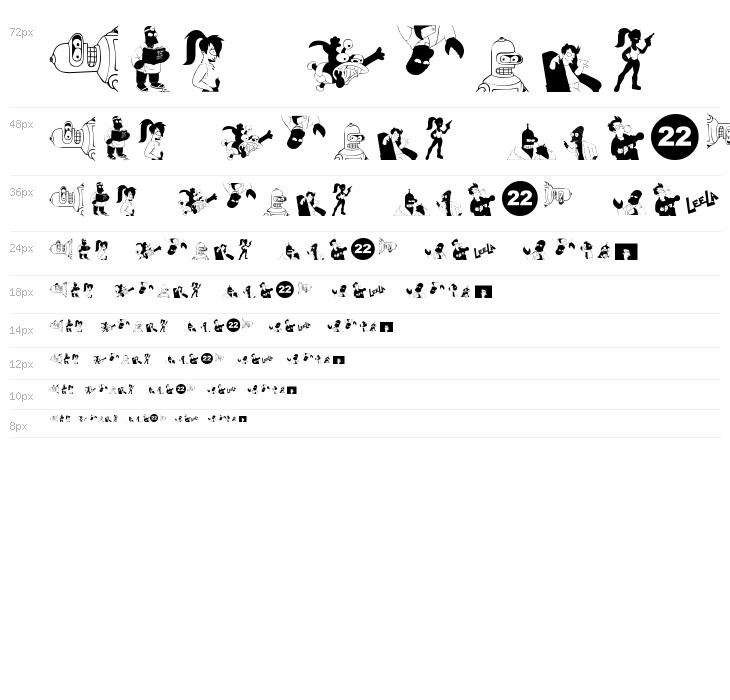 72px
48px
22
36px
22
LEELA
24px
22
LEELA
18px
22
LEELA
14px
22
LEELA
12px
22
LEELA
10px
22
LEELA
8px
22